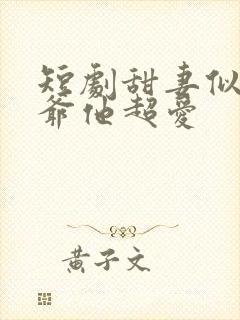 短劇甜妻似
爺他超愛
黃子文